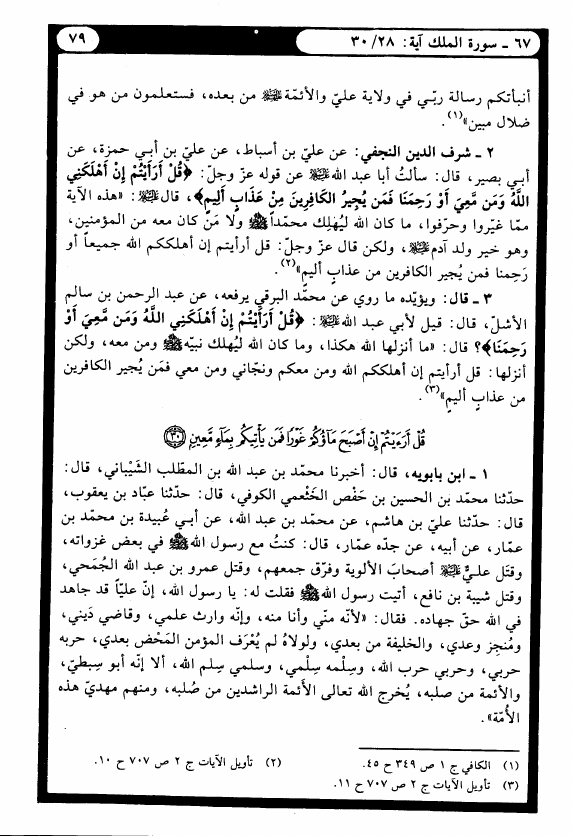 ٦٧ ـ سورة الملك آية: ٣٠/٢٨
٧٩
أنبأتكم رسالة ربّي في ولاية عليّ والأئمّة ﷺ من بعده، فستعلمون من هو في
ضلال مبين»(١).
٢ ـ شرف الدين النجفي: عن عليّ بن أسباط، عن عليّ بن أبي حمزة، عن
أبي بصير، قال: سألتُ أبا عبد الله ﷺ عن قوله عزّ وجلّ: ﴿قُلْ أَرَأَيْتُمْ إِنْ أَهْلَكَنِي
اللَّهُ وَمَن مَّعِيَ أَوْ رَحِمَنَا فَمَن يُجِيرُ الكَافِرِينَ مِنْ عَذَابٍ أَلِيمٍ﴾، قال ﷺ: «هذه الآية
ممّا غيّروا وحرّفوا، ما كان الله ليُهلِك محمّداً ﷺ ولا مَن كان معه من المؤمنين،
وهو خير ولد آدم ﷺ، ولكن قال عزّ وجلّ: قل أرأيتم إن أهلككم الله جميعاً أو
رَحِمنا فمن يُجير الكافرين من عذابٍ أليم»(٢).
٣ ـ قال: ويؤيّده ما روي عن محمّد البرقي يرفعه، عن عبد الرحمن بن سالم
الأشلّ، قال: قيل لأبي عبد الله ﷺ: ﴿قُلْ أَرَأَيْتُمْ إِنْ أَهْلَكَنِي اللَّهُ وَمَن مَّعِيَ أَوْ
رَحِمَنَا﴾؟ قال: «ما أنزلها الله هكذا، وما كان الله ليُهلك نبيّه ﷺ ومن معه، ولكن
أنزلها: قل أرأيتم إن أهلككم الله ومن معكم ونجّاني ومن معي فمَن يُجير الكافرين
من عذابٍ أليمٍ»(٣).
قُلْ أَرَءَيْتُمْ إِنْ أَصْبَحَ مَآؤُكُمْ غَوْرًا فَمَن يَأْتِيكُم بِمَآءٍ مَّعِينٍ ﴿٣٠﴾
١ ـ ابن بابويه، قال: أخبرنا محمّد بن عبد الله بن المطّلب الشَّيْباني، قال:
حدّثنا محمّد بن الحسين بن حَفْص الخَثْعمي الكوفي، قال: حدّثنا عبّاد بن يعقوب،
قال: حدّثنا عليّ بن هاشم، عن محمّد بن عبد الله، عن أبي عُبيدة بن محمّد بن
عمّار، عن أبيه، عن جدّه عمّار، قال: كنتُ مع رسول الله ﷺ في بعض غزواته،
وقتَل عليٌّ ﷺ أصحابَ الألوية وفرّق جمعهم، وقتل عمرو بن عبد الله الجُمَحي،
وقتل شيبة بن نافع، أتيت رسول الله ﷺ فقلت له: يا رسول الله، إنّ عليّاً قد جاهد
في الله حقّ جهاده. فقال: «لأنّه منّي وأنا منه، وإنّه وارث علمي، وقاضي دَيني،
ومُنجِز وعدي، والخليفة من بعدي، ولولاهُ لم يُعْرَف المؤمن المَحْض بعدي، حربه
حربي، وحربي حرب الله، وسِلْمه سِلْمي، وسلمي سِلم الله، ألا إنّه أبو سِبطيّ،
والأئمة من صلبه، يُخرج الله تعالى الأئمة الراشدين من صُلبه، ومنهم مهديّ هذه
الأُمّة».
(١) الكافي ج ١ ص ٣٤٩ ح ٤٥.
(٢) تأويل الآيات ج ٢ ص ٧٠٧ ح ١٠.
(٣) تأويل الآيات ج ٢ ص ٧٠٧ ح ١١.